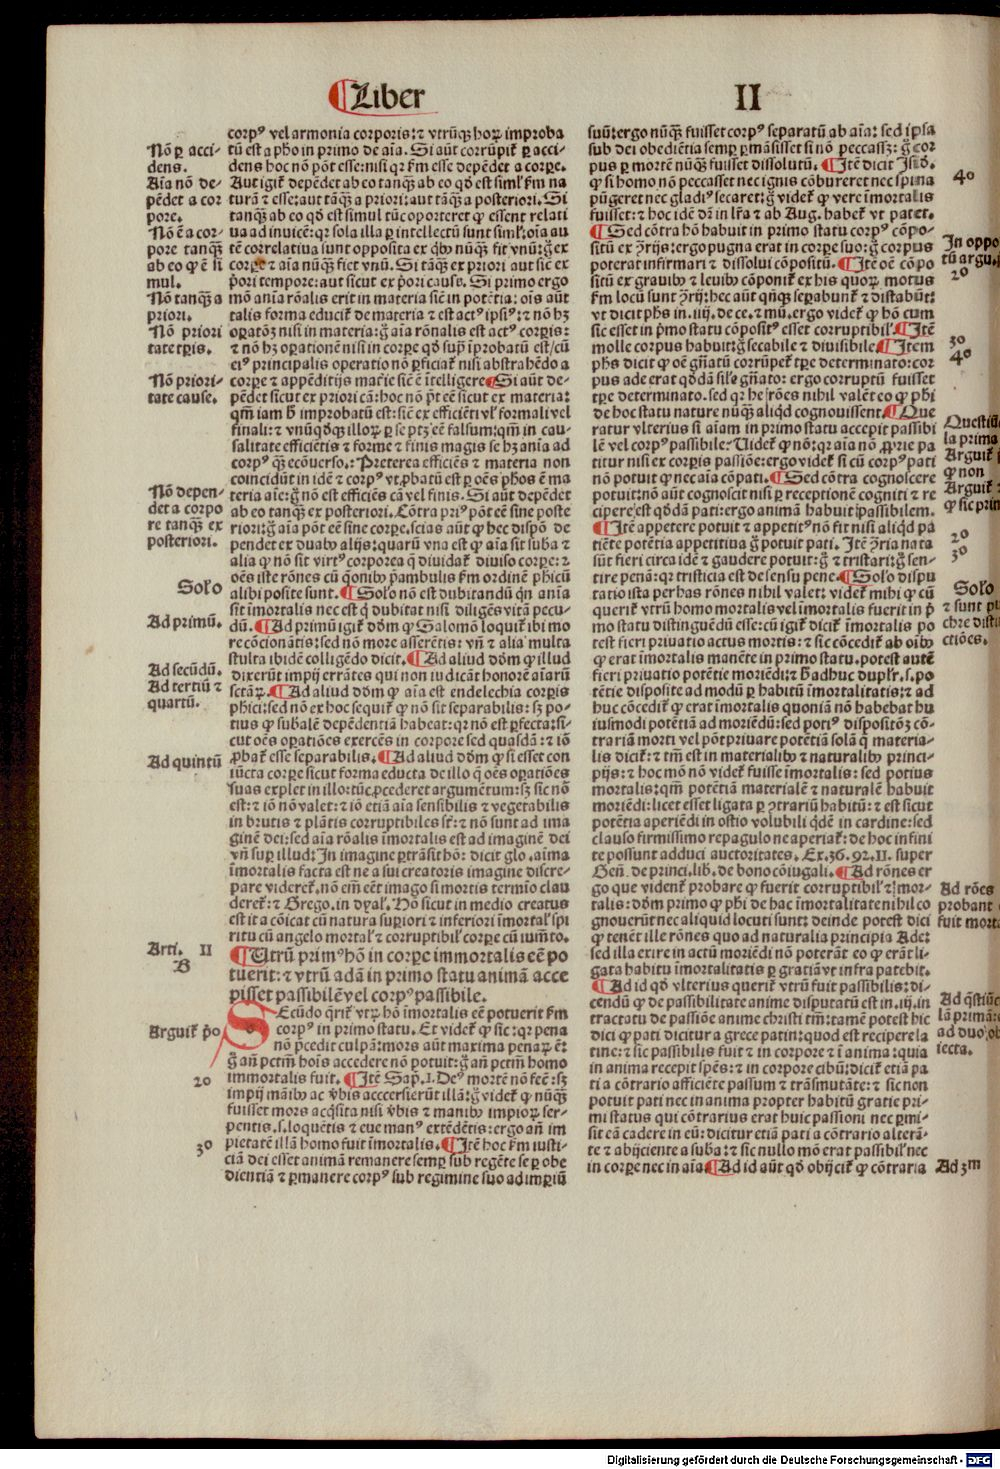 ¶Liber
II
corpꝰ vel armonia corporis: ⁊ vtrūqꝫ hoꝝ improba
tū est a pho in primo de aīa. Si aūt corrūpit᷑ ꝑ acci/
dens hoc nō pōt esse: nisi qꝛ ẜm esse depēdet a corꝑe.
Aut igit᷑ depēdet ab eo tanqꝫ ab eo qd̄ est simĺ ẜm na
turā ⁊ esse: aut tāqꝫ a priori: aut tāqꝫ a posteriori. Si
tanqꝫ ab eo qd̄ est simul tūc oporteret ꝙ essent relati
ua ad inuicē: qꝛ sola illa ꝑ intellectū sunt simĺ: oīa au
tē correlatiua sunt opposita ex qͥbꝰ nūqꝫ fit vnū: g̊ ex
corꝑe ⁊ aīa nūqꝫ fiet vnū. Si tāqꝫ ex priori aut sic̄ ex
p̄ori tempore: aut sicut ex p̄ori cause. Si primo ergo
mō anīa rōalis erit in materia sic̄ in potētia: oīs aūt
talis forma educit᷑ de materia ⁊ est actꝰ ipsiꝰ: ⁊ nō hꝫ
oꝑatōꝫ nisi in materia: g̊ aīa rōnalis est actꝰ corꝑis:
⁊ nō hꝫ oꝑationē nisi in corꝑe qd̄ supͣ īprobatū est/ cū
eiꝰ principalis operatio nō ꝑficiat᷑ nisi abstrahēdo a
corꝑe ⁊ appēditijs mat̓ie sic̄ ē ītelligere ¶Si aūt de/
pēdet sicut ex priori cā: hoc nō pōt eē sicut ex materia:
qm̄ iam h̄ improbatū est: sic̄ ex efficiēti vĺ formali vel
finali: ⁊ vnūqd̄qꝫ illoꝝ ꝑ se ptꝫ eē falsum: qm̄ in cau/
salitate efficiētis ⁊ forme ⁊ finis magis se hꝫ anīa ad
corpꝰ qꝫ ecōuerso. Preterea efficiēs ⁊ materia non
coincidūt in idē ⁊ corpꝰ vt ꝓbatū est ꝑ oēs phos ē ma
teria aīe: g̊ nō est efficiēs cā vel finis. Si aūt depēdet
ab eo tanqꝫ ex posteriori. Cōtra priꝰ pōt eē sine poste
riori: g̊ aīa pōt eē sine corꝑe. scias aūt ꝙ hec dispō de
pendet ex duabꝰ alijs: quarū vna est ꝙ aīa sit suba ⁊
alia ꝙ nō sit virtꝰ corporea q̄ diuidat᷑ diuiso corꝑe: ⁊
oēs iste rōnes cū q̄onibꝰ p̄ambulis ẜm ordinē phicū
alibi posite sunt. ¶Solo nō est dubitandū qn̄ anīa
sit īmortalis nec est qͥ dubitat nisi diligēs vitā pecu/
dū. ¶Ad primū igit᷑ dōm ꝙ Salomō loquit᷑ ibi mo
re cōcionātis: sed nō more asserētis: vn̄ ⁊ alia multa
stulta ibidē colligēdo dicit. ¶Ad aliud dōm ꝙ illud
dixerūt impij errātes qui non iudicāt honorē aīarū
sctāꝝ. ¶Ad aliud dōm ꝙ aīa est endelechia corꝑis
phici: sed nō ex hoc sequit᷑ ꝙ nō sit separabilis: sꝫ po/
tius ꝙ subalē depēdentiā habeat: qꝛ nō est ꝑfecta: si/
cut oēs oꝑatiōes exercēs in corpore sed quasdā: ⁊ iō
ꝓbat᷑ esse separabilis. ¶Ad aliud dōm ꝙ si esset con
iūcta corꝑe sicut forma educta de illo q̄ oēs oꝑatiōes
suas explet in illo: tūc ꝓcederet argumētum: sꝫ sic nō
est: ⁊ iō nō valet: ⁊ iō etiā aīa sensibilis ⁊ vegetabilis
in brutis ⁊ plātis corruptibiles st̄: ⁊ nō sunt ad ima
ginē dei: sed aīa rōalis īmortalis est ad imaginē dei
vn̄ suꝑ illud: In imagine ꝑtrāsit hō: dicit glo. aīma
īmortalis facta est ne a sui creatoris imagine discre/
pare videret᷑. nō em̄ eēt imago si mortis termīo clau
deret᷑: ⁊ Grego. in dyaĺ. Hō sicut in medio creatus
est ita cōicat cū natura suꝑiori ⁊ inferiori īmortaĺ spi
ritu cū angelo mortaĺ ⁊ corruptibiĺ corꝑe cū iumēto.
¶Utrū primꝰ hō in corꝑe immortalis eē po
tuerit: ⁊ vtrū adā in primo statu animā acce
pisset passibilē vel corpꝰ passibile.
SEcūdo q̄rit᷑ vtꝝ hō īmortalis eē potuerit ẜm
corpꝰ in primo statu. Et videt᷑ ꝙ sic: qꝛ pena
nō p̄cedit culpā: mors aūt maxima penaꝝ ē:
g̊ an̄ pctm̄ hoīs accedere nō potuit: g̊ an̄ pctm̄ homo
immortalis fuit. ¶Itē Sap̄. I. Deꝰ mortē nō fec̄: sꝫ
impij māibꝰ ac v̓bis acccersierūt illā: g̊ videt᷑ ꝙ nūqꝫ
fuisset mors acq̄sita nisi v̓bis ⁊ manibꝰ impioꝝ ser/
pentis. s. loquētis ⁊ eue manꝰ extēdētis: ergo an̄ im
pietatē illā homo fuit īmortalis. ¶Itē hoc ẜm iusti/
ciā dei esset animā remanere semꝑ sub regēte se ꝑ obe
dientiā ⁊ ꝑmanere corpꝰ sub regimine suo ad imꝑiū
Nō ꝑ acci/
dens.
Aīa nō de/
pēdet a cor
pore.
Nō ē a cor/
pore tanqꝫ
ab eo ꝙ ē si
mul.
Nō tanqꝫ a
priori.
Nō priori
tate tꝑis.
Nō priori/
tate cause.
Nō depen/
det a corpo
re tanqꝫ ex
posteriori.
Solo
Ad primū.
Ad secūdū.
Ad tertiū ⁊
quartū.
Ad quintū
Arti. II
B
Arguit᷑ p̄o
20
30
suū: ergo nūqꝫ fuisset corpꝰ separatū ab aīa: sed ipsa
sub dei obediētia semꝑ ꝑmāsisset si nō peccassꝫ: g̊ cor
pus ꝑ mortē nūqꝫ fuisset dissolutū. ¶Itē dicit Isid̄.
ꝙ si homo nō peccasset nec ignis cōbureret nec spina
pūgeret nec gladiꝰ secaret: g̊ videt᷑ ꝙ vere īmortalis
fuisset: ⁊ hoc idē dn̄ in lr̄a ⁊ ab Aug. habet᷑ vt patet.
¶Sed cōtra hō habuit in primo statu corpꝰ cōpo/
sitū ex ꝯtrijs: ergo pugna erat in corꝑe suo: g̊ corpus
poterat infirmari ⁊ dissolui cōpositū. ¶Itē oē cōpo
sitū ex grauibꝰ ⁊ leuibꝰ cōponit᷑ ex his quoꝝ motus
ẜm locū sunt ꝯtrij: hec aūt qn̄qꝫ seꝑabunt᷑ ⁊ distabūt:
vt dicit phs in. iiij. de ce. ⁊ mū. ergo videt᷑ ꝙ hō cum
sic esset in p̄mo statu cōpositꝰ esset corruptibiĺ. ¶Itē
molle corpus habuit: g̊ secabile ⁊ diuisibile. ¶Item
phs dicit ꝙ oē gn̄atū corrūpet᷑ tꝑe determinato: cor
pus ade erat qd̄dā siĺe gn̄ato: ergo corruptū fuisset
tꝑe determinato. sed qꝛ he rōes nihil valēt eo ꝙ phi
de hoc statu nature nūqꝫ aliqd̄ cognouissent. ¶Que
ratur vlterius si aīam in primo statu accepit passibi
lē vel corpꝰ passibile. Uidet᷑ ꝙ nō: qꝛ aīa nō ꝓprie pa
titur nisi ex corꝑis passiōe: ergo videt᷑ si cū corpꝰ pati
nō potuit ꝙ nec aīa cōpati. ¶Sed cōtra cognoscere
potuit: nō aūt cognoscit nisi ꝑ receptionē cogniti ⁊ re
cipere est qd̄dā pati: ergo animā habuit passibilem.
¶Itē appetere potuit ⁊ appetitꝰ nō fit nisi aliqd̄ pa
tiēte potētia appetitiua g̊ potuit pati. Itē ꝯtria nata
sūt fieri circa idē ⁊ gaudere potuit: g̊ ⁊ tristari: g̊ sen/
tire penā: qꝛ tristicia est de sensu pene. ¶Solo dispu
tatio ista per has rōnes nihil valet: videt᷑ mihi ꝙ cū
querit᷑ vtrū homo mortalis vel īmortalis fuerit in p̄
mo statu distinguēdū esse: cū igit᷑ dicit᷑ īmortalis po
test fieri priuatio actus mortis: ⁊ sic cōcedit᷑ ab oībꝰ
ꝙ erat īmortalis manēte in primo statu. potest autē
fieri priuatio potētie moriēdi: ⁊ h̄ adhuc dupĺr. s. po
tētie disposite ad modū ꝑ habitū īmortalitatis: ⁊ ad
huc cōcedit᷑ ꝙ erat īmortalis quoniā nō habebat hu
iusmodi potētiā ad moriēdū: sed potiꝰ dispositōꝫ cō/
trariā morti vel pōt priuare potētiā solā q̄ materia/
lis dicit᷑: ⁊ tm̄ est in materialibꝰ ⁊ naturalibꝰ princi/
pijs: ⁊ hoc mō nō videt᷑ fuisse īmortalis: sed potius
mortalis: qm̄ potētiā materialē ⁊ naturalē habuit
moriēdi: licet esset ligata ꝑ ꝯtrariū habitū: ⁊ est sicut
potētia aperiēdi in ostio volubili qd̄ē in cardine: sed
clauso firmissimo repagulo ne aperiat᷑: de hoc infini
te possunt adduci auctoritates. Ex. 36. 92. II. super
Gen̄. de princi. lib. de bono cōiugali. ¶Ad rōnes er
go que vident᷑ probare ꝙ fuerit corruptibiĺ ⁊ mor/
talis: dōm primo ꝙ phi de hac īmortalitate nihil co
gnouerūt nec aliquid locuti sunt: deinde potest dici
ꝙ tenēt ille rōnes quo ad naturalia principia Ade:
sed illa exire in actū moriēdi nō poterāt eo ꝙ erāt li/
gata habitu īmortalitatis ꝑ gratiā vt infra patebit.
¶Ad id qd̄ vlterius querit᷑ vtrū fuit passibilis: di/
cendū ꝙ de passibilitate anime disputatū est in. iij. in
tractatu de passiōe anime christi tm̄: tamē potest hic
dici ꝙ pati dicitur a grece patin: quod est recipere la
tine: ⁊ sic passibilis fuit ⁊ in corpore ⁊ ī anima: quia
in anima recepit spēs: ⁊ in corpore cibū: dicit᷑ etiā pa
ti a cōtrario afficiēte passum ⁊ trāsmutāte: ⁊ sic non
potuit pati nec in anima propter habitū gratie pri/
mi status qui cōtrarius erat huic passioni nec ꝑmi/
sit eā cadere in eū: dicitur etiā pati a cōtrario alterā/
te ⁊ abijciente a suba: ⁊ sic nullo mō erat passibiĺ nec
in corꝑe nec in aīa. ¶Ad id aūt qd̄ obijcit᷑ ꝙ cōtraria
40
In oppo
tū argu.
20
30
40
Questiū
la prima
Arguit᷑
ꝙ non
Arguit᷑
ꝙ sic prin
20
30
Solo
⁊ sunt pu
chre disti
ctiōes.
Ad rōes
probant
fuit morta
Ad q̄stiūc
lā primā
ad duo ob
iecta.
Ad 3m
Digitalisierung gefördert durch die Deutsche Forschungsgemeinschaft - DFG